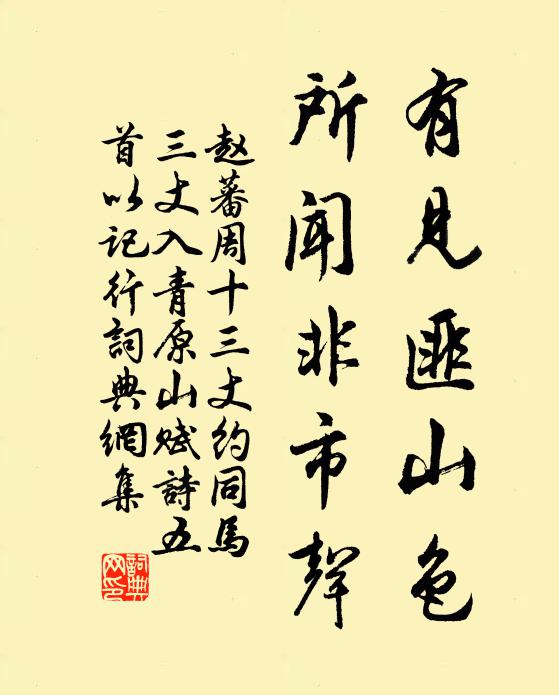 有見匪山色
所聞非市聲
赵蕃周十三丈約同馬
三丈入青原山赋詩五
首以記行詞典網集
詞典
网印